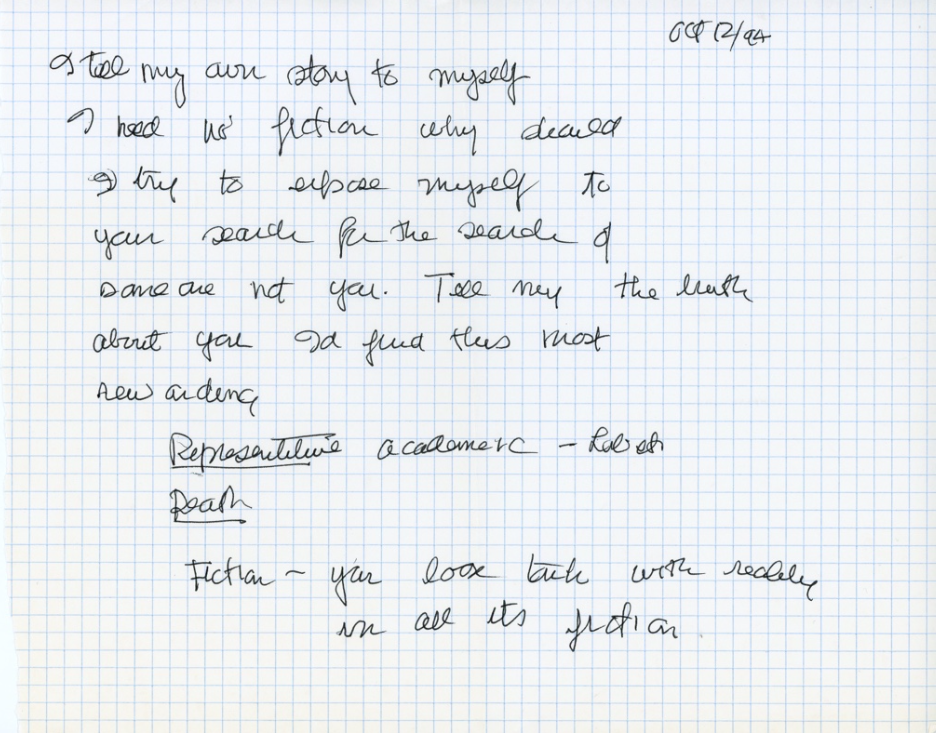 Oct 12/94
I tell my own story to myself
I need no fiction why should
I try to expose myself to
your search for the search of
someone not you. Tell my the truth
about you I'd find this most
rewarding
Representitive academic -
Death
Fiction ~ you lose touch with reality
in all its fiction